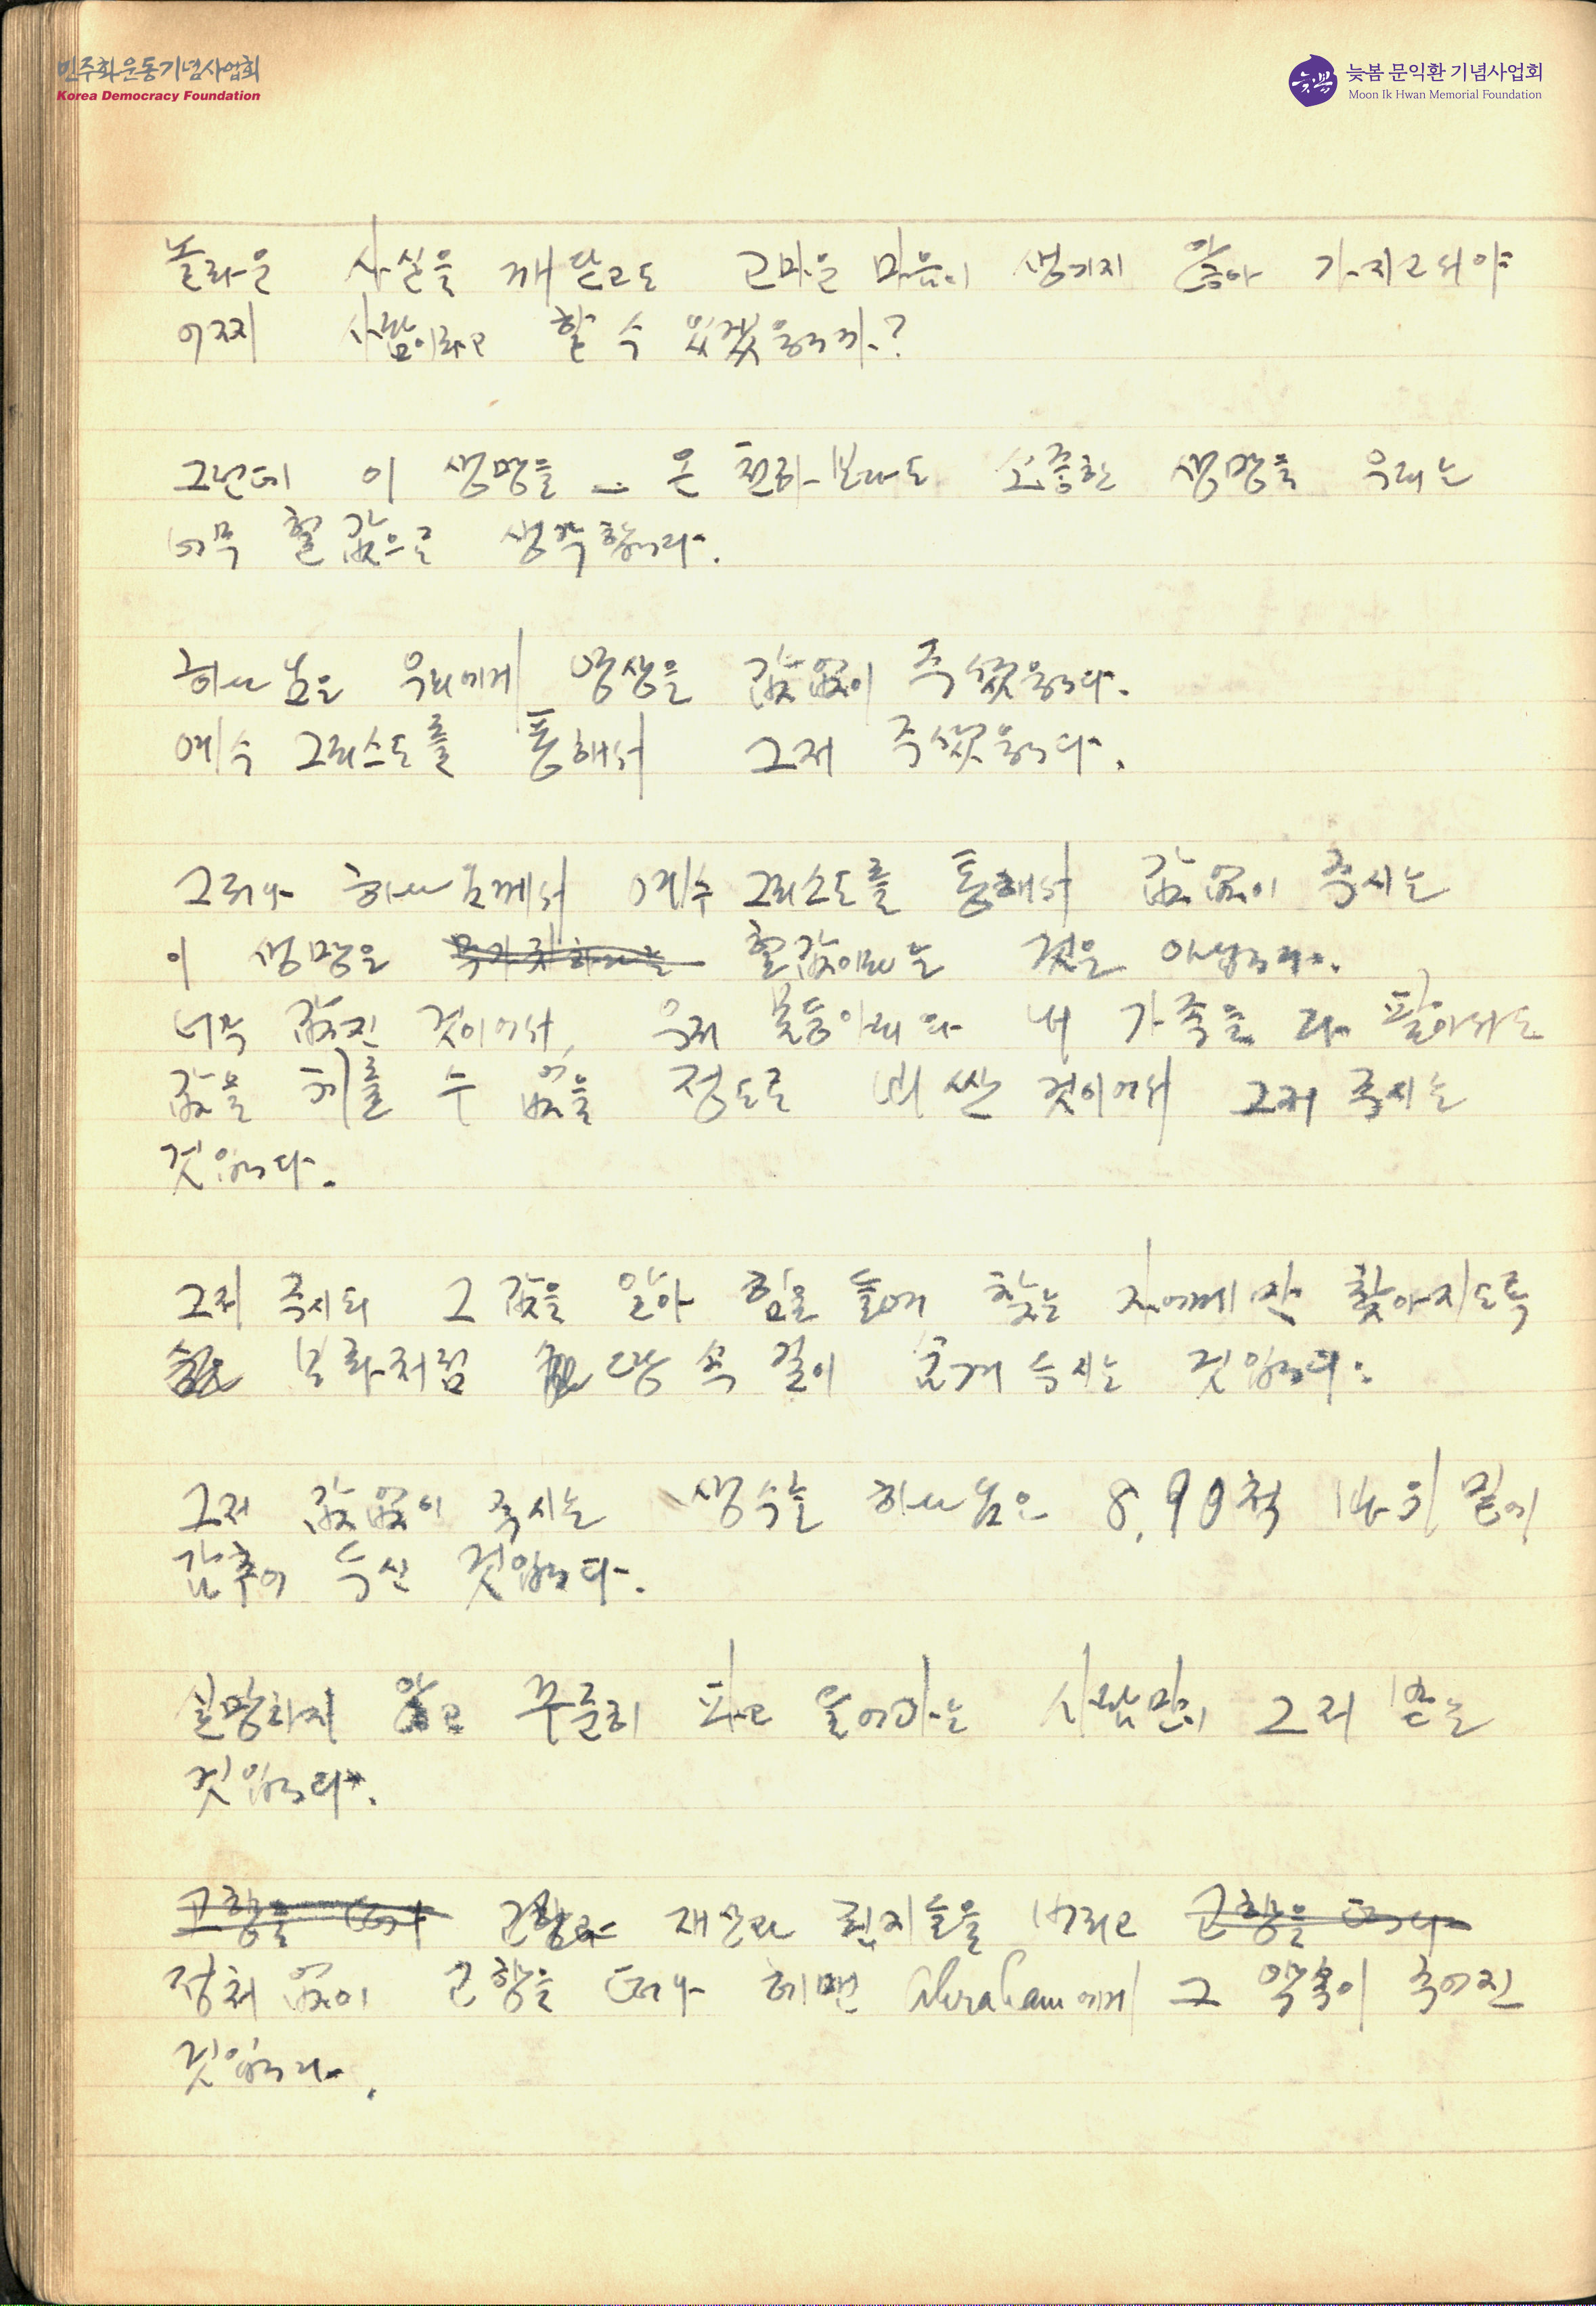 민주화운동기념사업회
Korea Democracy Foundation
늦봄 문익환 기념사업회
Moon Ik Hwan Memorial Foundation
놀라운 사실을 깨닫고도 고마운 마음이 생기지 않아 가지고되야
어찌 사람이라고 할 수 있겠읍니까?
그런데 이 생명을 — 온 천하보다도 소중한 생명을 우리는
너무 헐값으로 생각합니다.
하나님은 우리에게 영생을 값없이 주셨읍니다.
예수 그리스도를 통해서 그저 주셨읍니다.
그러나 하나님께서 예수 그리스도를 통해서 값없이 주시는
이 생명은 헐값이라는 것은 아닙니다.
너무 값진 것이어서, 우리 몸둥아리와 내 가족을 다 팔아서도
값을 치를 수 없을 정도로 비싼 것이어서 그저 주시는
것입니다.
그저 주시되 그 값을 알아 힘을 들여 찾는 자에게만 찾아지도록
보화처럼 땅 속 깊이 숨겨 두시는 것입니다.
그저 값없이 주시는 생수를 하나님은 8, 90척 바위 밑에
감추어 두신 것입니다.
실망하지 않고 꾸준히 파고 들어가는 사람만이 그저 받는
것입니다.
고향을 떠나 고향과 재산과 친지들을 버리고 고향을 떠나
정처 없이 고향을 떠나 헤맨 Abraham에게 그 약속이 주어진
것입니다.